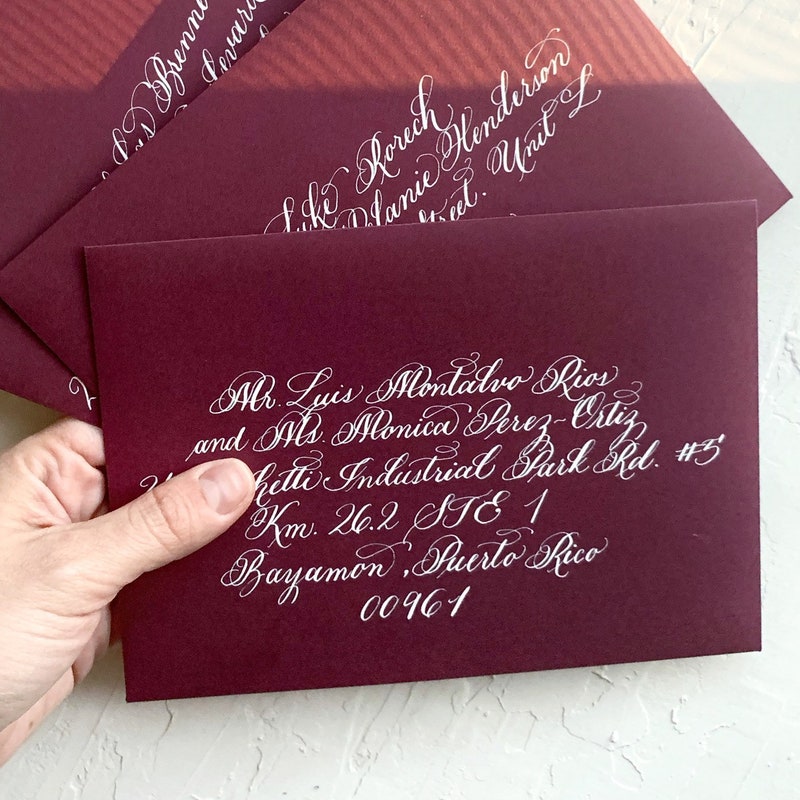 Brenn
Luke Korech
Melanie Henderson
Street. Unit L
Mr. Luis Montalvo Rios
and Ms. Monica Perez-Ortiz
Industrial Park Rd. #5
Km. 26.2 STE 1
Bayamon, Puerto Rico
00961